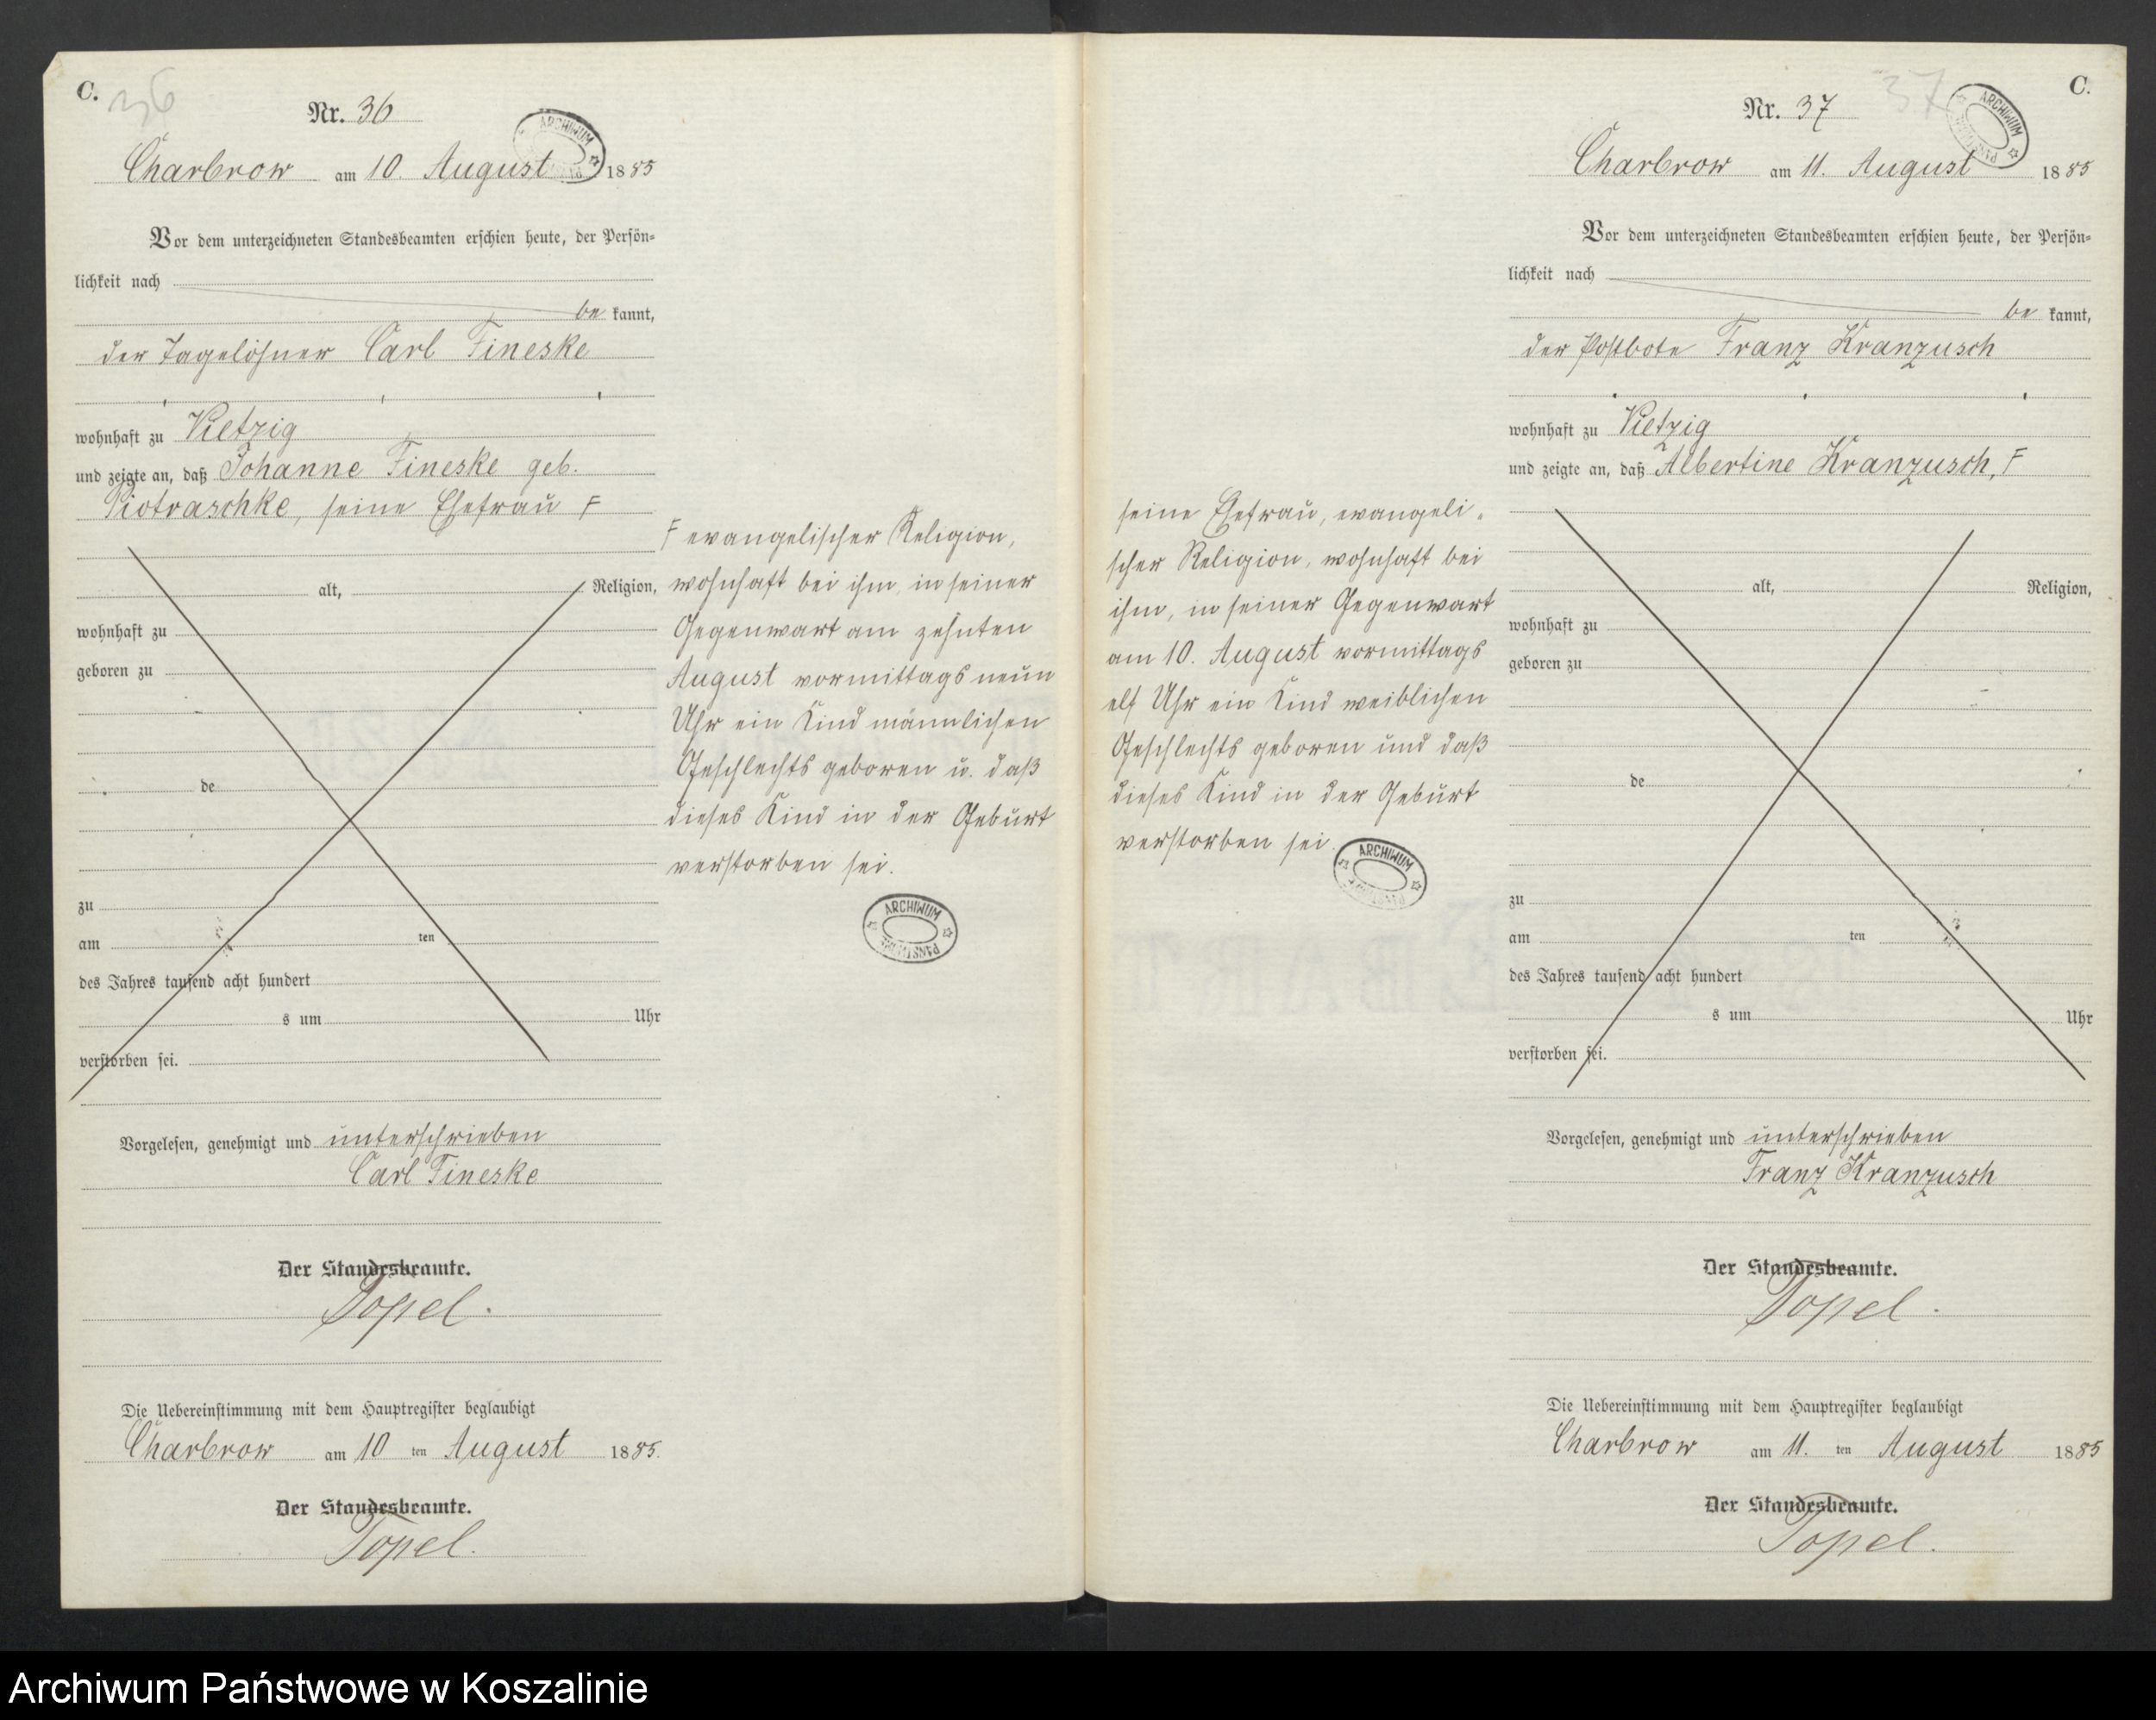 C. 36
Nr. 36
Charbrow am 10. August 1885
Vor dem unterzeichneten Standesbeamten erschien heute, der Persön-
lichkeit nach
be kannt,
der Tagelöhner Carl Fineske
wohnhaft zu Vietzig
und zeigte an, daß Johanne Fineske geb.
Piotraschke, seine Ehefrau F
alt, Religion,
wohnhaft zu
geboren zu
de
zu
am ten
des Jahres tausend acht hundert
s um Uhr
verstorben sei.
F evangelischer Religion,
wohnhaft bei ihm, in seiner
Gegenwart am zehnten
August vormittags neun
Uhr ein Kind männlichen
Geschlechts geboren u. daß
dieses Kind in der Geburt
verstorben sei.
ARCHIWUM
Vorgelesen, genehmigt und unterschrieben
Carl Fineske
Der Standesbeamte.
Topel.
Die Uebereinstimmung mit dem Hauptregister beglaubigt
Charbrow am 10 ten August 1885.
Der Standesbeamte.
Topel.
C.
37
Nr. 37
ARCHIWUM
Charbrow am 11. August 1885
Vor dem unterzeichneten Standesbeamten erschien heute, der Persön-
lichkeit nach
be kannt,
der Postbote Franz Kranzusch
wohnhaft zu Vietzig
und zeigte an, daß Albertine Kranzusch, F
seine Ehefrau, evangeli-
scher Religion, wohnhaft bei
ihm, in seiner Gegenwart
am 10. August vormittags
elf Uhr ein Kind weiblichen
Geschlechts geboren und daß
dieses Kind in der Geburt
verstorben sei.
ARCHIWUM
alt, Religion,
wohnhaft zu
geboren zu
de
zu
am ten
des Jahres tausend acht hundert
s um Uhr
verstorben sei.
Vorgelesen, genehmigt und unterschrieben
Franz Kranzusch
Der Standesbeamte.
Topel.
Die Uebereinstimmung mit dem Hauptregister beglaubigt
Charbrow am 11. ten August 1885
Der Standesbeamte.
Topel.
Archiwum Państwowe w Koszalinie